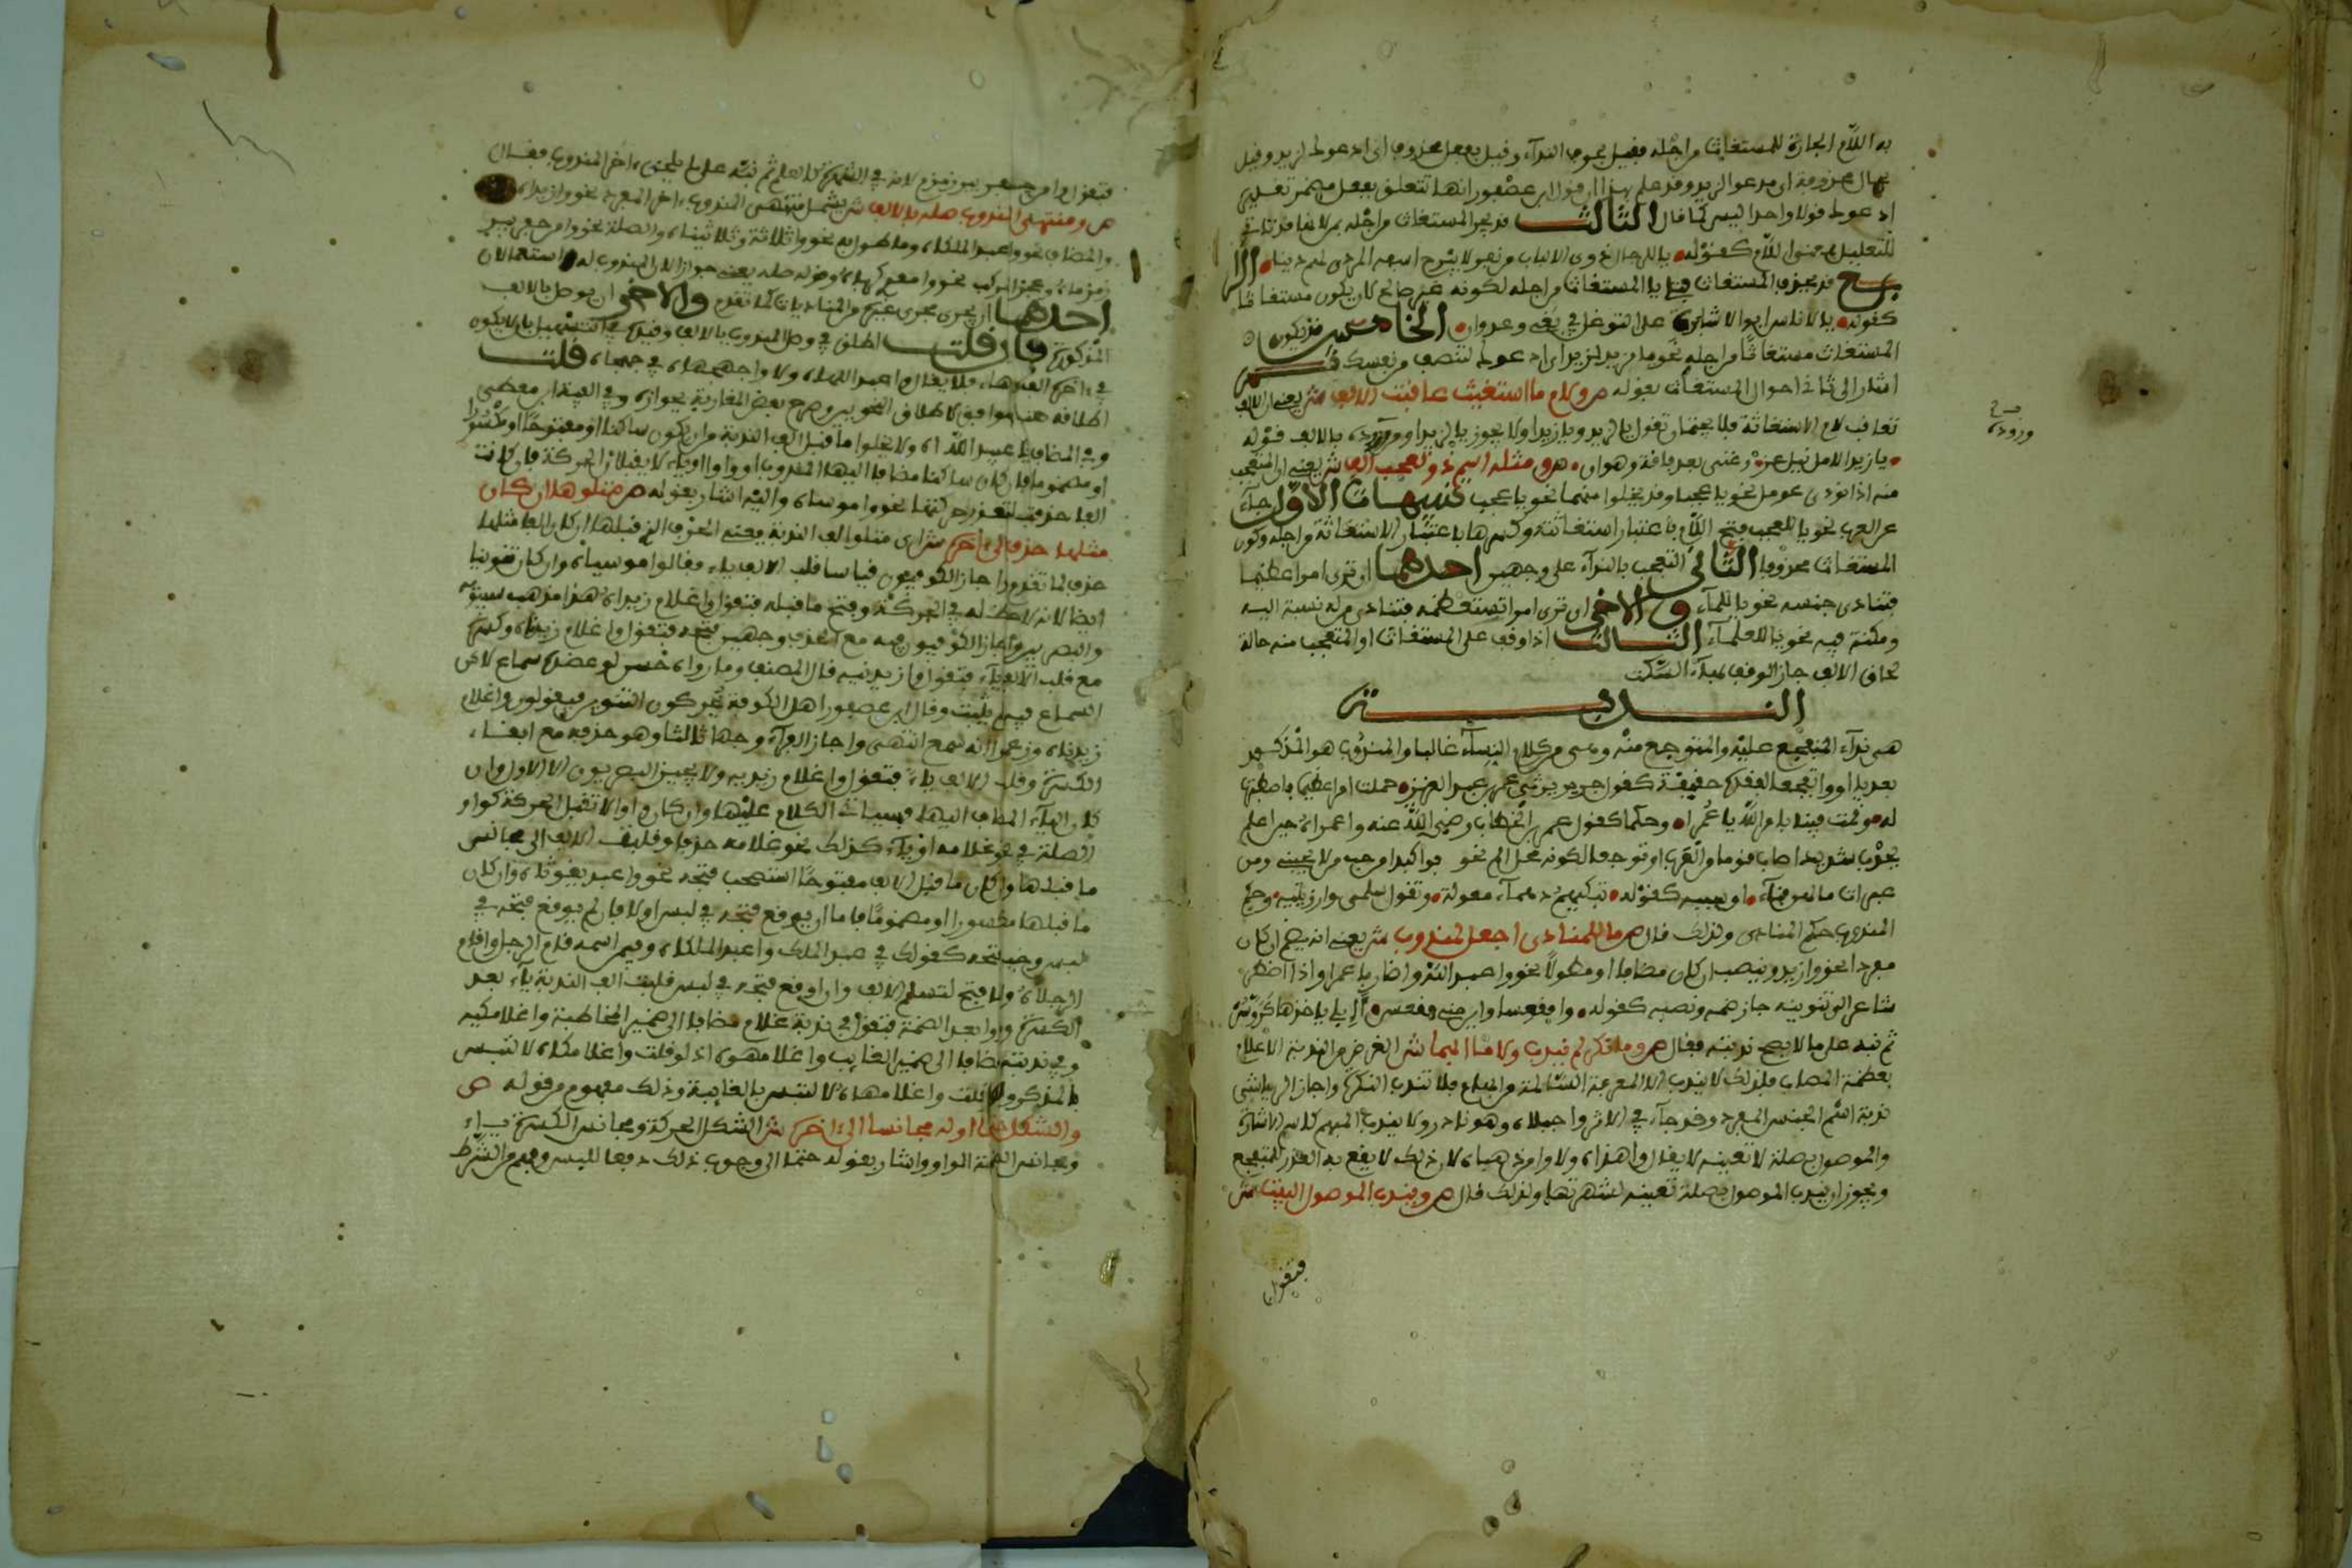 به اللام الجارة للمستغاث من اجله فقيل بحرف النداء وقيل بفعل محذوف اى ادعوك لزيد وقيل
بحال محذوفة اى مدعوا لزيد وقد علم بهذا ان قول ابن عصفور انها تتعلق بفعل مضمر تقديره
ادعوك قولا واحدا ليس كما قال الثالث قد يجر المستغاث من اجله بمن لانها قد تاتى
للتعليل بمعنى اللام كقوله يا للرجال ذوى الالباب من نفر لا يبرح السفه المردى لهم دينا الرا
بع قد يحذف المستغاث فيلى يا المستغاث من اجله لكونه غير صالح لان يكون مستغاثا
كقوله يا لاناس ابوا الا مثابرة على التوغل فى بغى وعدوان الخامس قد يكون
المستغاث مستغاثا من اجله نحو يا لزيد لزيد اى ادعوك لتنصف من نفسك ثم
اشار الى ثانى احوال المستغاث بقوله ص ولام ما استغيث عاقبت الالف ش يعنى ان الالف
تعاقب لام الاستغاثة فلا يجتمعان تقول يا لزيد ويا زيدا ولا يجوز يا لزيدا ووروده بالالف قوله
يا زيدا لامل نيل عز وغنى بعد فاقة وهوان ص ومثله اسم ذو تعجب الف ش يعنى ان المتعجب
وروده
منه اذا نودى عومل نحو يا عجبا وقد يخلوا منهما نحو يا عجب تنبيهات الاول جاء
عن العرب نحو يا للعجب بفتح اللام باعتبار استغاثته وكسرها باعتبار الاستغاثة من اجله وكون
المستغاث محذوفا الثانى التعجب بالنداء على وجهين احدهما ان ترى امرا عظيما
فتنادى جنسه نحو يا للماء والاخر ان ترى امرا تستعظمه فتنادى من له نسبة اليه
ومكنة فيه نحو يا للعلماء الثالث اذا وقف على المستغاث او المتعجب منه حالة
لحاق الالف جاز الوقف بهاء السكت
الندبة
هى نداء المتفجع عليه والمتوجع منه وهى من كلام النساء غالبا والمندوب هو المذكور
بعد يا او وا تفجعا لفقده حقيقة كقول جرير يرثى عمر بن عبد العزيز حملت امرا عظيما فاصطبرت
له وقمت فينا بامر الله يا عمرا وحكما كقول عمر بن الخطاب رضى الله عنه واعمراه حين اعلم
بجدب شديد اصاب قوما من العرب او توجعا لكونه محل الم نحو فوا كبدا من حب من لا يحبنى ومن
عبرات ما لهن فناء او سببه كقوله تبكيهم دهماء معولة وتقول سلمى وارزيتيه وحكم
المندوب حكم المنادى ولذلك قال ص ما للمنادى اجعل لمندوب ش يعنى انه يضم ان كان
مفردا نحو وازيد وينصب ان كان مضافا او مطولا نحو واعبد الله واضاربا عمرا واذا اضطر
شاعر الى تنوينه جاز ضمه ونصبه كقوله وافقعسا واين منى فقعس أإبلى ياخذها كروس
ثم نبه على ما لا يصح ندبته فقال ص وما نكر لم يندب ولا ما ابهما ش الغرض من الندبة الاعلام
بعظمة المصاب فلذلك لا يندب الا المعرفة السالمة من ابهام فلا تندب النكرة واجاز الرياشى
ندبة اسم الجنس المفرد وقد جاء فى الاثر واجبلاه وهو نادر ولا يندب المبهم كاسم الاشارة
والموصول بصلة لا تعينه لا يقال واهذاه ولا وامن ذهباه لان ذلك لا يقع به العذر للمتفجع
ويجوز ان يندب الموصول بصلة تعينه لشهرتها ولذلك قال ص ويندب الموصول البيت ش
فتقول
فتقول وامن حفر بير زمزم لانه فى الشهرة كالعلم ثم نبه على ما يلحق اخر المندوب فقال
ص ومنتهى المندوب صله بالالف ش يشمل منتهى المندوب اخر المفرد نحو وازيداه
والمضاف نحو واعبد الملكاه وما طول به نحو واثلاثة وثلاثيناه والصلة نحو وامن حفر بير
زمزماه وعجز المركب نحو وامعدى كرباه وقوله صله يعنى جوازا لان المندوب له استعمالان
احدهما ان يجرى مجرى غيره من المناديات كما تقدم والاخر ان يوصل بالالف
المذكورة فان قلت اطلق فى وصل المندوب بالالف وقيده فى التسهيل بان لا يكون
فى اخره الف وهاء فلا يقال واعبد اللهاه ولا واجهجهاه فى جهجاه قلت
اطلاقه هنا موافق لاطلاق النحويين وصرح بعض المغاربة بجوازه وفى الفية ابن معطى
وفى المضاف يا عبيد اللهاه ولا يخلوا ما قبل الف الندبة من ان يكون ساكنا او مفتوحا او مكسورا
او مضموما فان كان ساكنا مضافا اليها المندوب او واوا او ياء لا يقبلان الحركة فان كانت
الفا حذفت لتعذر حركتها نحو واموساه واليه اشار بقوله ص متلوها ان كان
مثلها حذف الى اخره ش اى متلو الف الندبة يعنى الحرف الذى قبلها ان كان الفا مثلها
حذف لما تقدم واجاز الكوفيون قياسا قلب الالف ياء فقالوا موسياه وان كان تنوينا
ايضا لانه لا حظ له فى الحركة وفتح ما قبله فتقول واغلام زيداه هذا مذهب سيبويه
والبصريين واجاز الكوفيون فيه مع الحذف وجهين فتحه فتقول واغلام زيدناه وكسره
مع قلب الالف ياء فتقول وازيدنيه قال المصنف وما راوه حسن لو عضده سماع لكن
السماع فيه لم يثبت وقال ابن عصفور اهل الكوفة يحركون التنوين فيقولون واغلام
زيدناه وزعموا انه سمع انتهى واجاز الفراء وجها ثالثا وهو حذفه مع ابقاء
الكسرة وقلب الالف ياء فتقول واغلام زيديه ولا يجيز البصريون الا الاول وان
كان الياء المضاف اليها فسياتى الكلام عليها وان كان واوا لا تقبل الحركة كواو
الصلة فى نحو غلامه او ياء كذلك نحو غلامه حذفا وقلبت الالف الى مجانس
ما قبلها وان كان ما قبل الالف مفتوحا استصحب فتحه نحو واعبد يغوثاه وان كان
ما قبلها مكسورا او مضموما فاما ان يوقع فتحه فى لبس او لا فان لم يوقع فتحه فى
لبس وجب فتحه كقولك فى عبد الملك واعبد الملكاه وفيمن اسمه قام الرجل واقام
الرجلاه ولا فتح لتسلم الالف وان اوقع فتحه فى لبس قلبت الف الندبة ياء بعد
الكسرة وواوا بعد الضمة فتقول فى ندبة غلام مضافا الى ضمير المخاطبة واغلامكيه
وفى ندبته مضافا الى ضمير الغايب واغلامهوه اذ لو قلت واغلامكاه لالتبس
بالمذكر ولو قلت واغلامهاه لالتبس بالغايبة وذلك مفهوم من قوله ص
والشكل حتما اوله مجانسا الى اخره ش الشكل الحركة ومجانس الكسرة ياء
ومجانس الضمة الواو واشار بقوله حتما الى وجوب ذلك دفعا للبس وفهم من الشرط